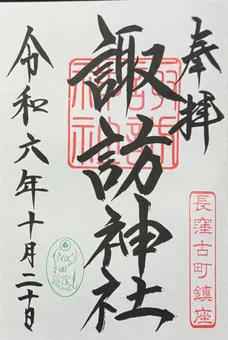 奉拝
長窪古町鎮座
諏訪神社
令和六年十月二十日